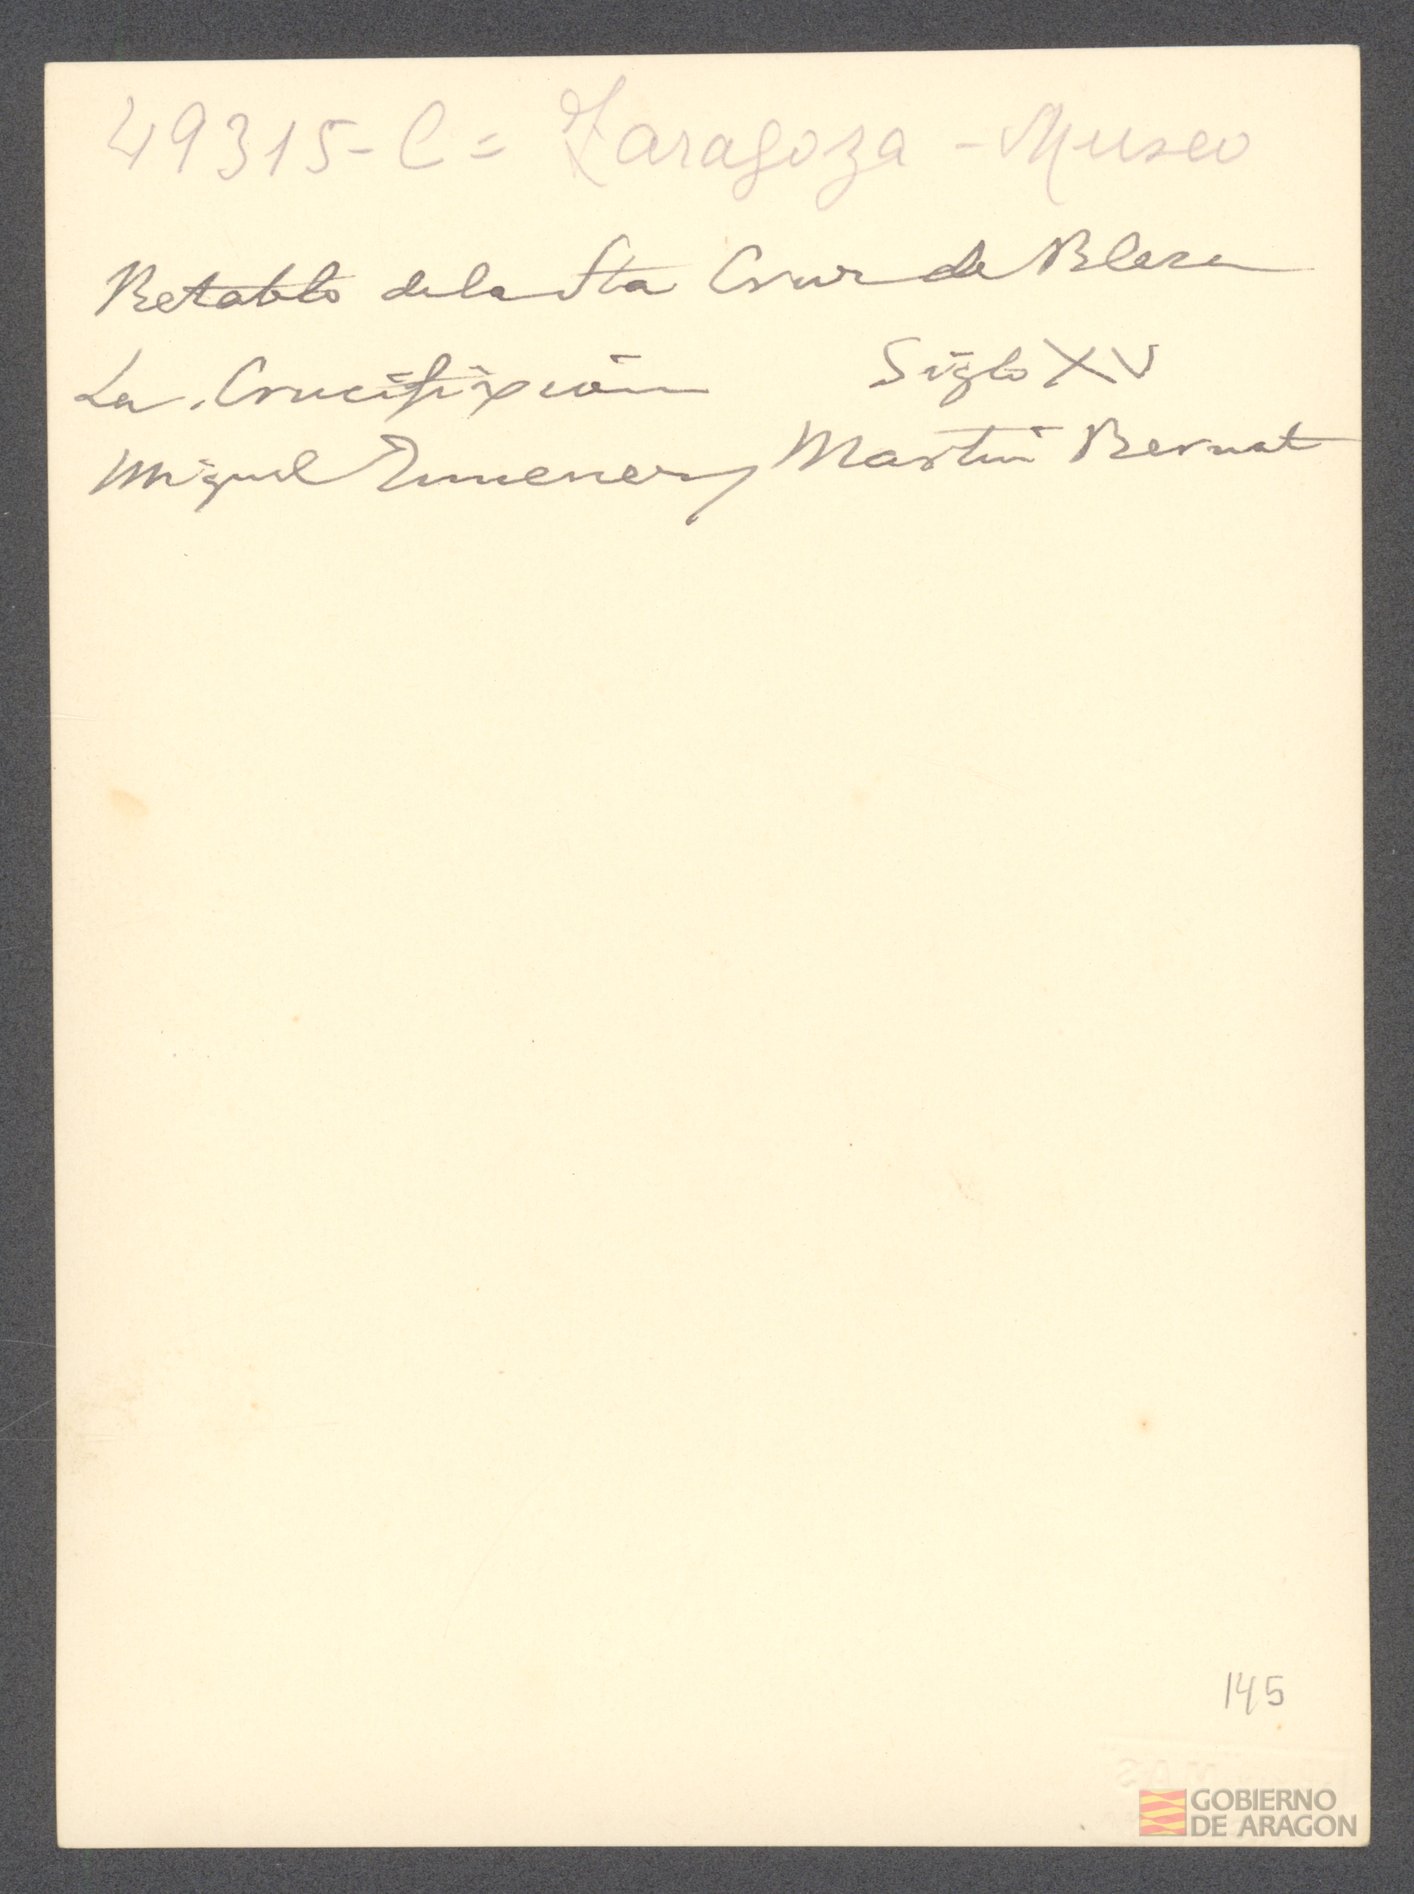 49315-C = Zaragoza - Museo
Retablo de la Sta Cruz de Blesa
La Crucifixión Siglo XV
Miguel Ximenez y Martin Bernat
145
GOBIERNO
DE ARAGON